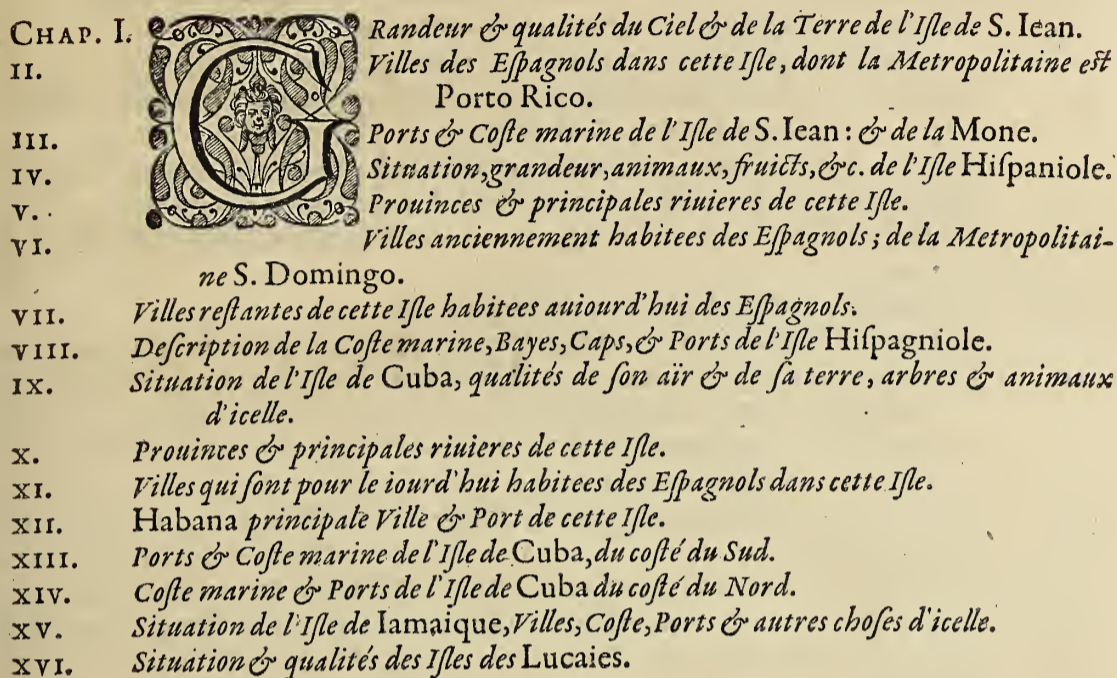 CHAP. I. GRandeur & qualités du Ciel & de la Terre de l'Iſle de S. Iean.
II. Villes des Eſpagnols dans cette Iſle, dont la Metropolitaine eſt
Porto Rico.
III. Ports & Coſte marine de l'Iſle de S. Iean : & de la Mone.
IV. Situation, grandeur, animaux, fruicts, &c. de l'Iſle Hiſpaniole.
V. Prouinces & principales riuieres de cette Iſle.
VI. Villes anciennement habitees des Eſpagnols ; de la Metropolitai-
ne S. Domingo.
VII. Villes reſtantes de cette Iſle habitees auiourd'hui des Eſpagnols.
VIII. Deſcription de la Coſte marine, Bayes, Caps, & Ports de l'Iſle Hiſpagniole.
IX. Situation de l'Iſle de Cuba, qualités de ſon aïr & de ſa terre, arbres & animaux
d'icelle.
X. Prouinces & principales riuieres de cette Iſle.
XI. Villes qui ſont pour le iourd'hui habitees des Eſpagnols dans cette Iſle.
XII. Habana principale Ville & Port de cette Iſle.
XIII. Ports & Coſte marine de l'Iſle de Cuba, du coſté du Sud.
XIV. Coſte marine & Ports de l'Iſle de Cuba du coſté du Nord.
XV. Situation de l'Iſle de Iamaique, Villes, Coſte, Ports & autres choſes d'icelle.
XVI. Situation & qualités des Iſles des Lucaies.